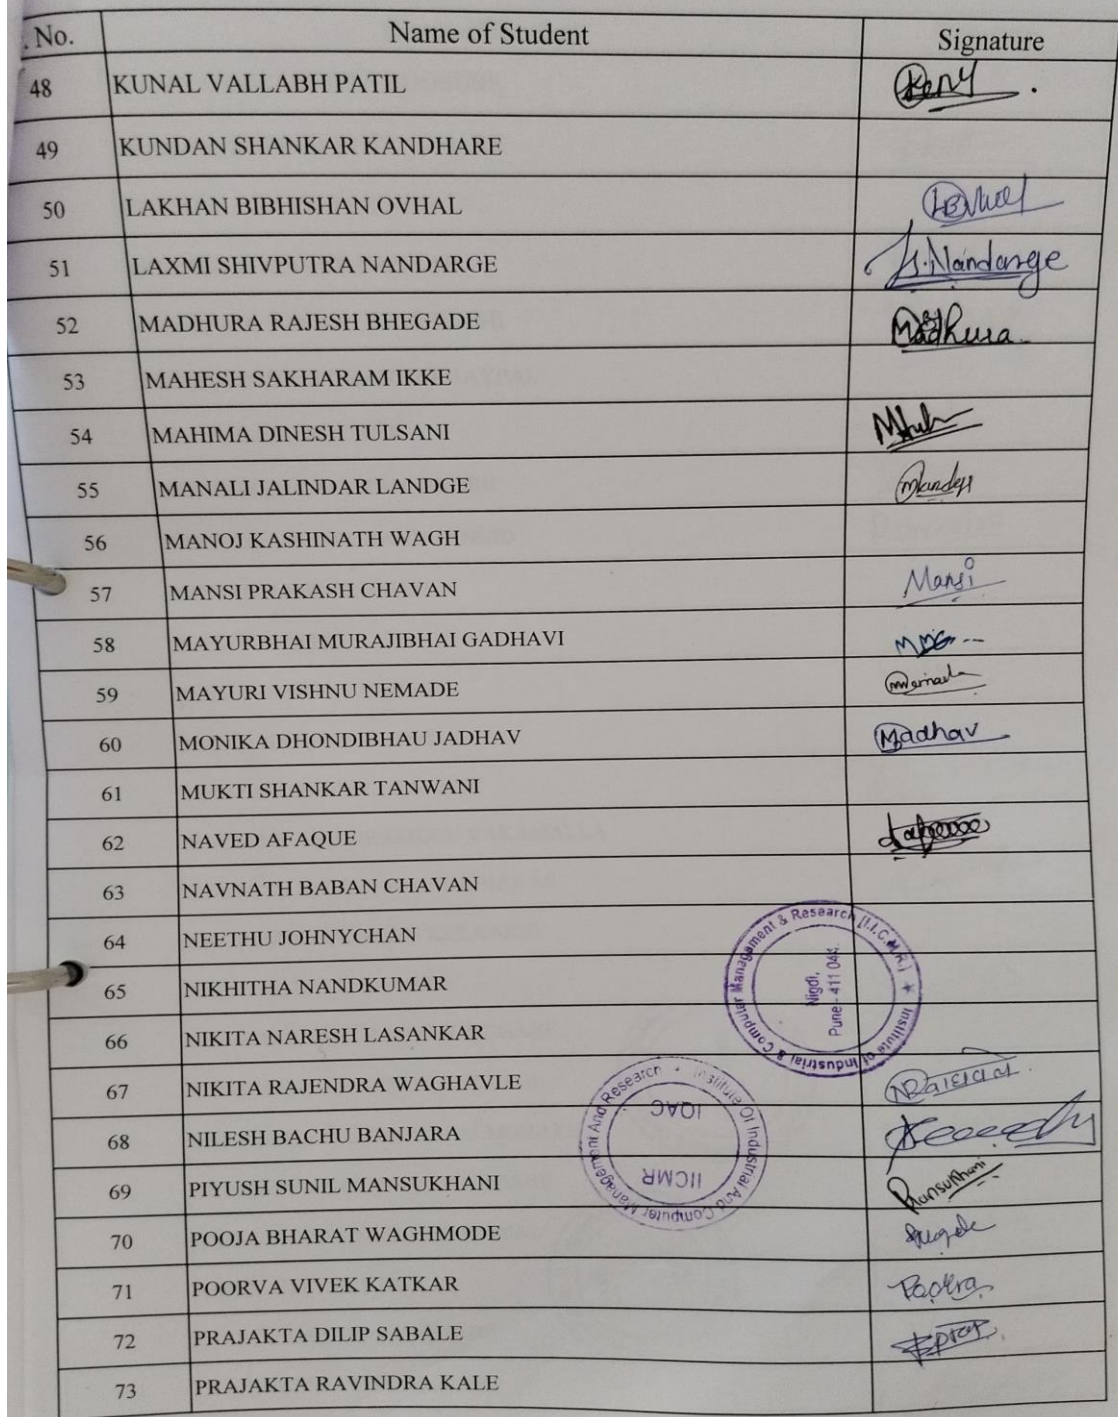 . No. Name of Student Signature
48 KUNAL VALLABH PATIL
49 KUNDAN SHANKAR KANDHARE
50 LAKHAN BIBHISHAN OVHAL
51 LAXMI SHIVPUTRA NANDARGE S.Nandarge
52 MADHURA RAJESH BHEGADE Madhura
53 MAHESH SAKHARAM IKKE
54 MAHIMA DINESH TULSANI
55 MANALI JALINDAR LANDGE
56 MANOJ KASHINATH WAGH
57 MANSI PRAKASH CHAVAN Mansi
58 MAYURBHAI MURAJIBHAI GADHAVI
59 MAYURI VISHNU NEMADE
60 MONIKA DHONDIBHAU JADHAV Madhav
61 MUKTI SHANKAR TANWANI
62 NAVED AFAQUE
63 NAVNATH BABAN CHAVAN
64 NEETHU JOHNYCHAN
65 NIKHITHA NANDKUMAR
66 NIKITA NARESH LASANKAR
67 NIKITA RAJENDRA WAGHAVLE
68 NILESH BACHU BANJARA
69 PIYUSH SUNIL MANSUKHANI Mansukhani
70 POOJA BHARAT WAGHMODE
71 POORVA VIVEK KATKAR
72 PRAJAKTA DILIP SABALE
73 PRAJAKTA RAVINDRA KALE
Institute of Industrial & Computer Management & Research (I.I.C.M.R) ★
Nigdi,
Pune - 411 044.
Institute Of Industrial And Computer Management And Research
IICMR
IQAC